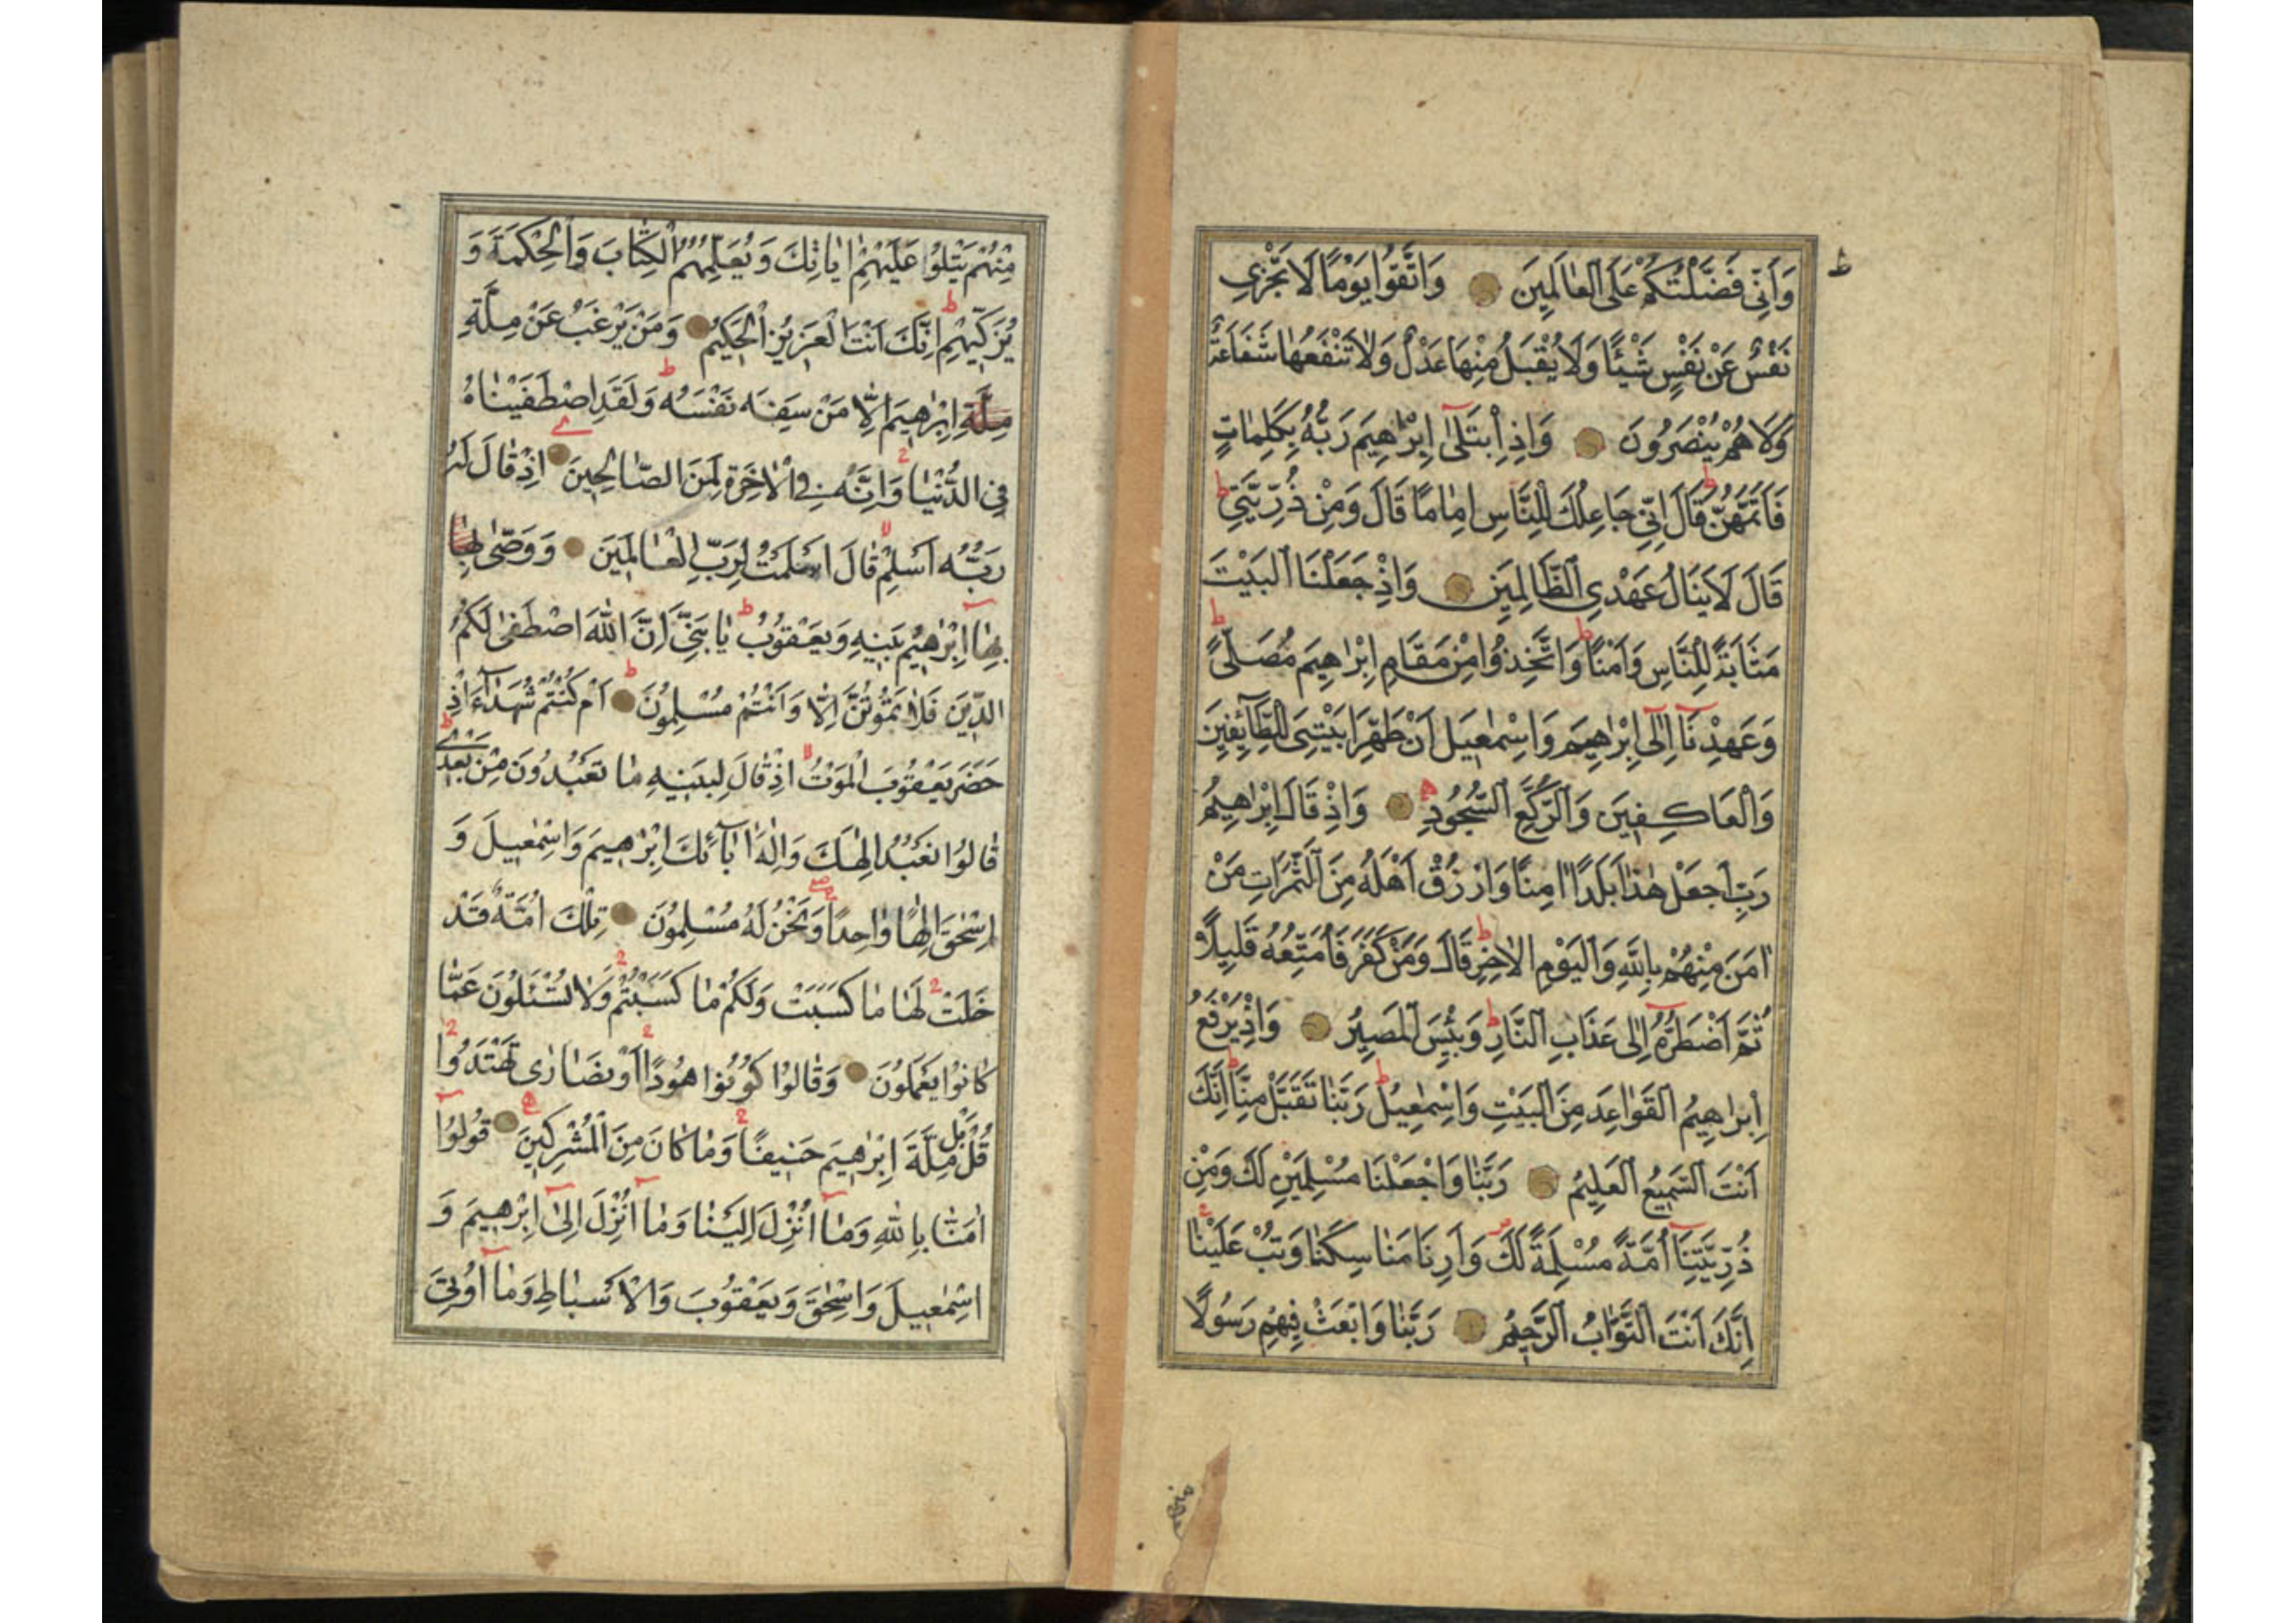 وَاَنِّى فَضَّلْتُكُمْ عَلَى الْعَالَمِينَ وَاتَّقُوا يَوْمًا لَا تَجْزِى
نَفْسٌ عَنْ نَفْسٍ شَيْئًا وَلَا يُقْبَلُ مِنْهَا عَدْلٌ وَلَا تَنْفَعُهَا شَفَاعَةٌ
وَلَا هُمْ يُنْصَرُونَ وَاِذِ ابْتَلٰٓى اِبْرٰهِيمَ رَبُّهُ بِكَلِمَاتٍ
فَاَتَمَّهُنَّ قَالَ اِنِّى جَاعِلُكَ لِلنَّاسِ اِمَامًا قَالَ وَمِنْ ذُرِّيَّتِى
قَالَ لَا يَنَالُ عَهْدِى الظَّالِمِينَ وَاِذْ جَعَلْنَا الْبَيْتَ
مَثَابَةً لِلنَّاسِ وَاَمْنًا وَاتَّخِذُوا مِنْ مَقَامِ اِبْرٰهِيمَ مُصَلًّى
وَعَهِدْنَٓا اِلٰٓى اِبْرٰهِيمَ وَاِسْمٰعِيلَ اَنْ طَهِّرَا بَيْتِىَ لِلطَّٓائِفِينَ
وَالْعَاكِفِينَ وَالرُّكَّعِ السُّجُودِ وَاِذْ قَالَ اِبْرٰهِيمُ
رَبِّ اجْعَلْ هٰذَا بَلَدًا اٰمِنًا وَارْزُقْ اَهْلَهُ مِنَ الثَّمَرَاتِ مَنْ
اٰمَنَ مِنْهُمْ بِاللّٰهِ وَالْيَوْمِ الْاٰخِرِ قَالَ وَمَنْ كَفَرَ فَاُمَتِّعُهُ قَلِيلًا
ثُمَّ اَضْطَرُّهُٓ اِلٰى عَذَابِ النَّارِ وَبِئْسَ الْمَصِيرُ وَاِذْ يَرْفَعُ
اِبْرٰهِيمُ الْقَوَاعِدَ مِنَ الْبَيْتِ وَاِسْمٰعِيلُ رَبَّنَا تَقَبَّلْ مِنَّا اِنَّكَ
اَنْتَ السَّمِيعُ الْعَلِيمُ رَبَّنَا وَاجْعَلْنَا مُسْلِمَيْنِ لَكَ وَمِنْ
ذُرِّيَّتِنَٓا اُمَّةً مُسْلِمَةً لَكَ وَاَرِنَا مَنَاسِكَنَا وَتُبْ عَلَيْنَا
اِنَّكَ اَنْتَ التَّوَّابُ الرَّحِيمُ رَبَّنَا وَابْعَثْ فِيهِمْ رَسُولًا
مِنْهُمْ يَتْلُوا عَلَيْهِمْ اٰيَاتِكَ وَيُعَلِّمُهُمُ الْكِتَابَ وَالْحِكْمَةَ وَ
يُزَكِّيهِمْ اِنَّكَ اَنْتَ الْعَزِيزُ الْحَكِيمُ وَمَنْ يَرْغَبُ عَنْ مِلَّةِ
مِلَّةِ اِبْرٰهِيمَ اِلَّا مَنْ سَفِهَ نَفْسَهُ وَلَقَدِ اصْطَفَيْنَاهُ
فِى الدُّنْيَا وَاِنَّهُ فِى الْاٰخِرَةِ لَمِنَ الصَّالِحِينَ اِذْ قَالَ لَهُ
رَبُّهُ اَسْلِمْ قَالَ اَسْلَمْتُ لِرَبِّ الْعَالَمِينَ وَوَصّٰى بِهَا
بِهَٓا اِبْرٰهِيمُ بَنِيهِ وَيَعْقُوبُ يَا بَنِىَّ اِنَّ اللّٰهَ اصْطَفٰى لَكُمُ
الدِّينَ فَلَا تَمُوتُنَّ اِلَّا وَاَنْتُمْ مُسْلِمُونَ اَمْ كُنْتُمْ شُهَدَٓاءَ اِذْ
حَضَرَ يَعْقُوبَ الْمَوْتُ اِذْ قَالَ لِبَنِيهِ مَا تَعْبُدُونَ مِنْ بَعْدِى
قَالُوا نَعْبُدُ اِلٰهَكَ وَاِلٰهَ اٰبَٓائِكَ اِبْرٰهِيمَ وَاِسْمٰعِيلَ وَ
اِسْحٰقَ اِلٰهًا وَاحِدًا وَنَحْنُ لَهُ مُسْلِمُونَ تِلْكَ اُمَّةٌ قَدْ
خَلَتْ لَهَا مَا كَسَبَتْ وَلَكُمْ مَا كَسَبْتُمْ وَلَا تُسْئَلُونَ عَمَّا
كَانُوا يَعْمَلُونَ وَقَالُوا كُونُوا هُودًا اَوْ نَصَارٰى تَهْتَدُوا
قُلْ بَلْ مِلَّةَ اِبْرٰهِيمَ حَنِيفًا وَمَا كَانَ مِنَ الْمُشْرِكِينَ قُولُٓوا
اٰمَنَّا بِاللّٰهِ وَمَٓا اُنْزِلَ اِلَيْنَا وَمَٓا اُنْزِلَ اِلٰٓى اِبْرٰهِيمَ وَ
اِسْمٰعِيلَ وَاِسْحٰقَ وَيَعْقُوبَ وَالْاَسْبَاطِ وَمَٓا اُوتِىَ